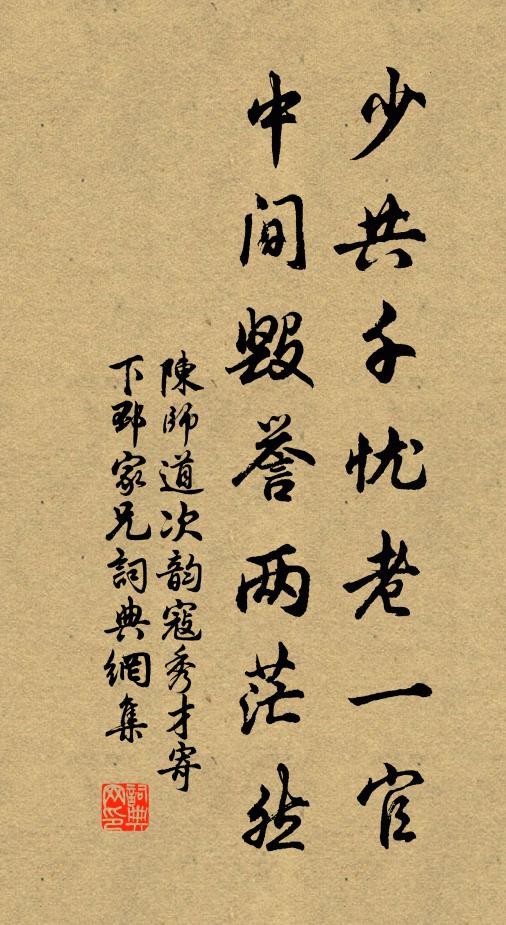 少共千忧老一官
中间毁誉两茫然
陳師道次韵寇秀才寄
下邳家兄詞典網集
詞典
网印